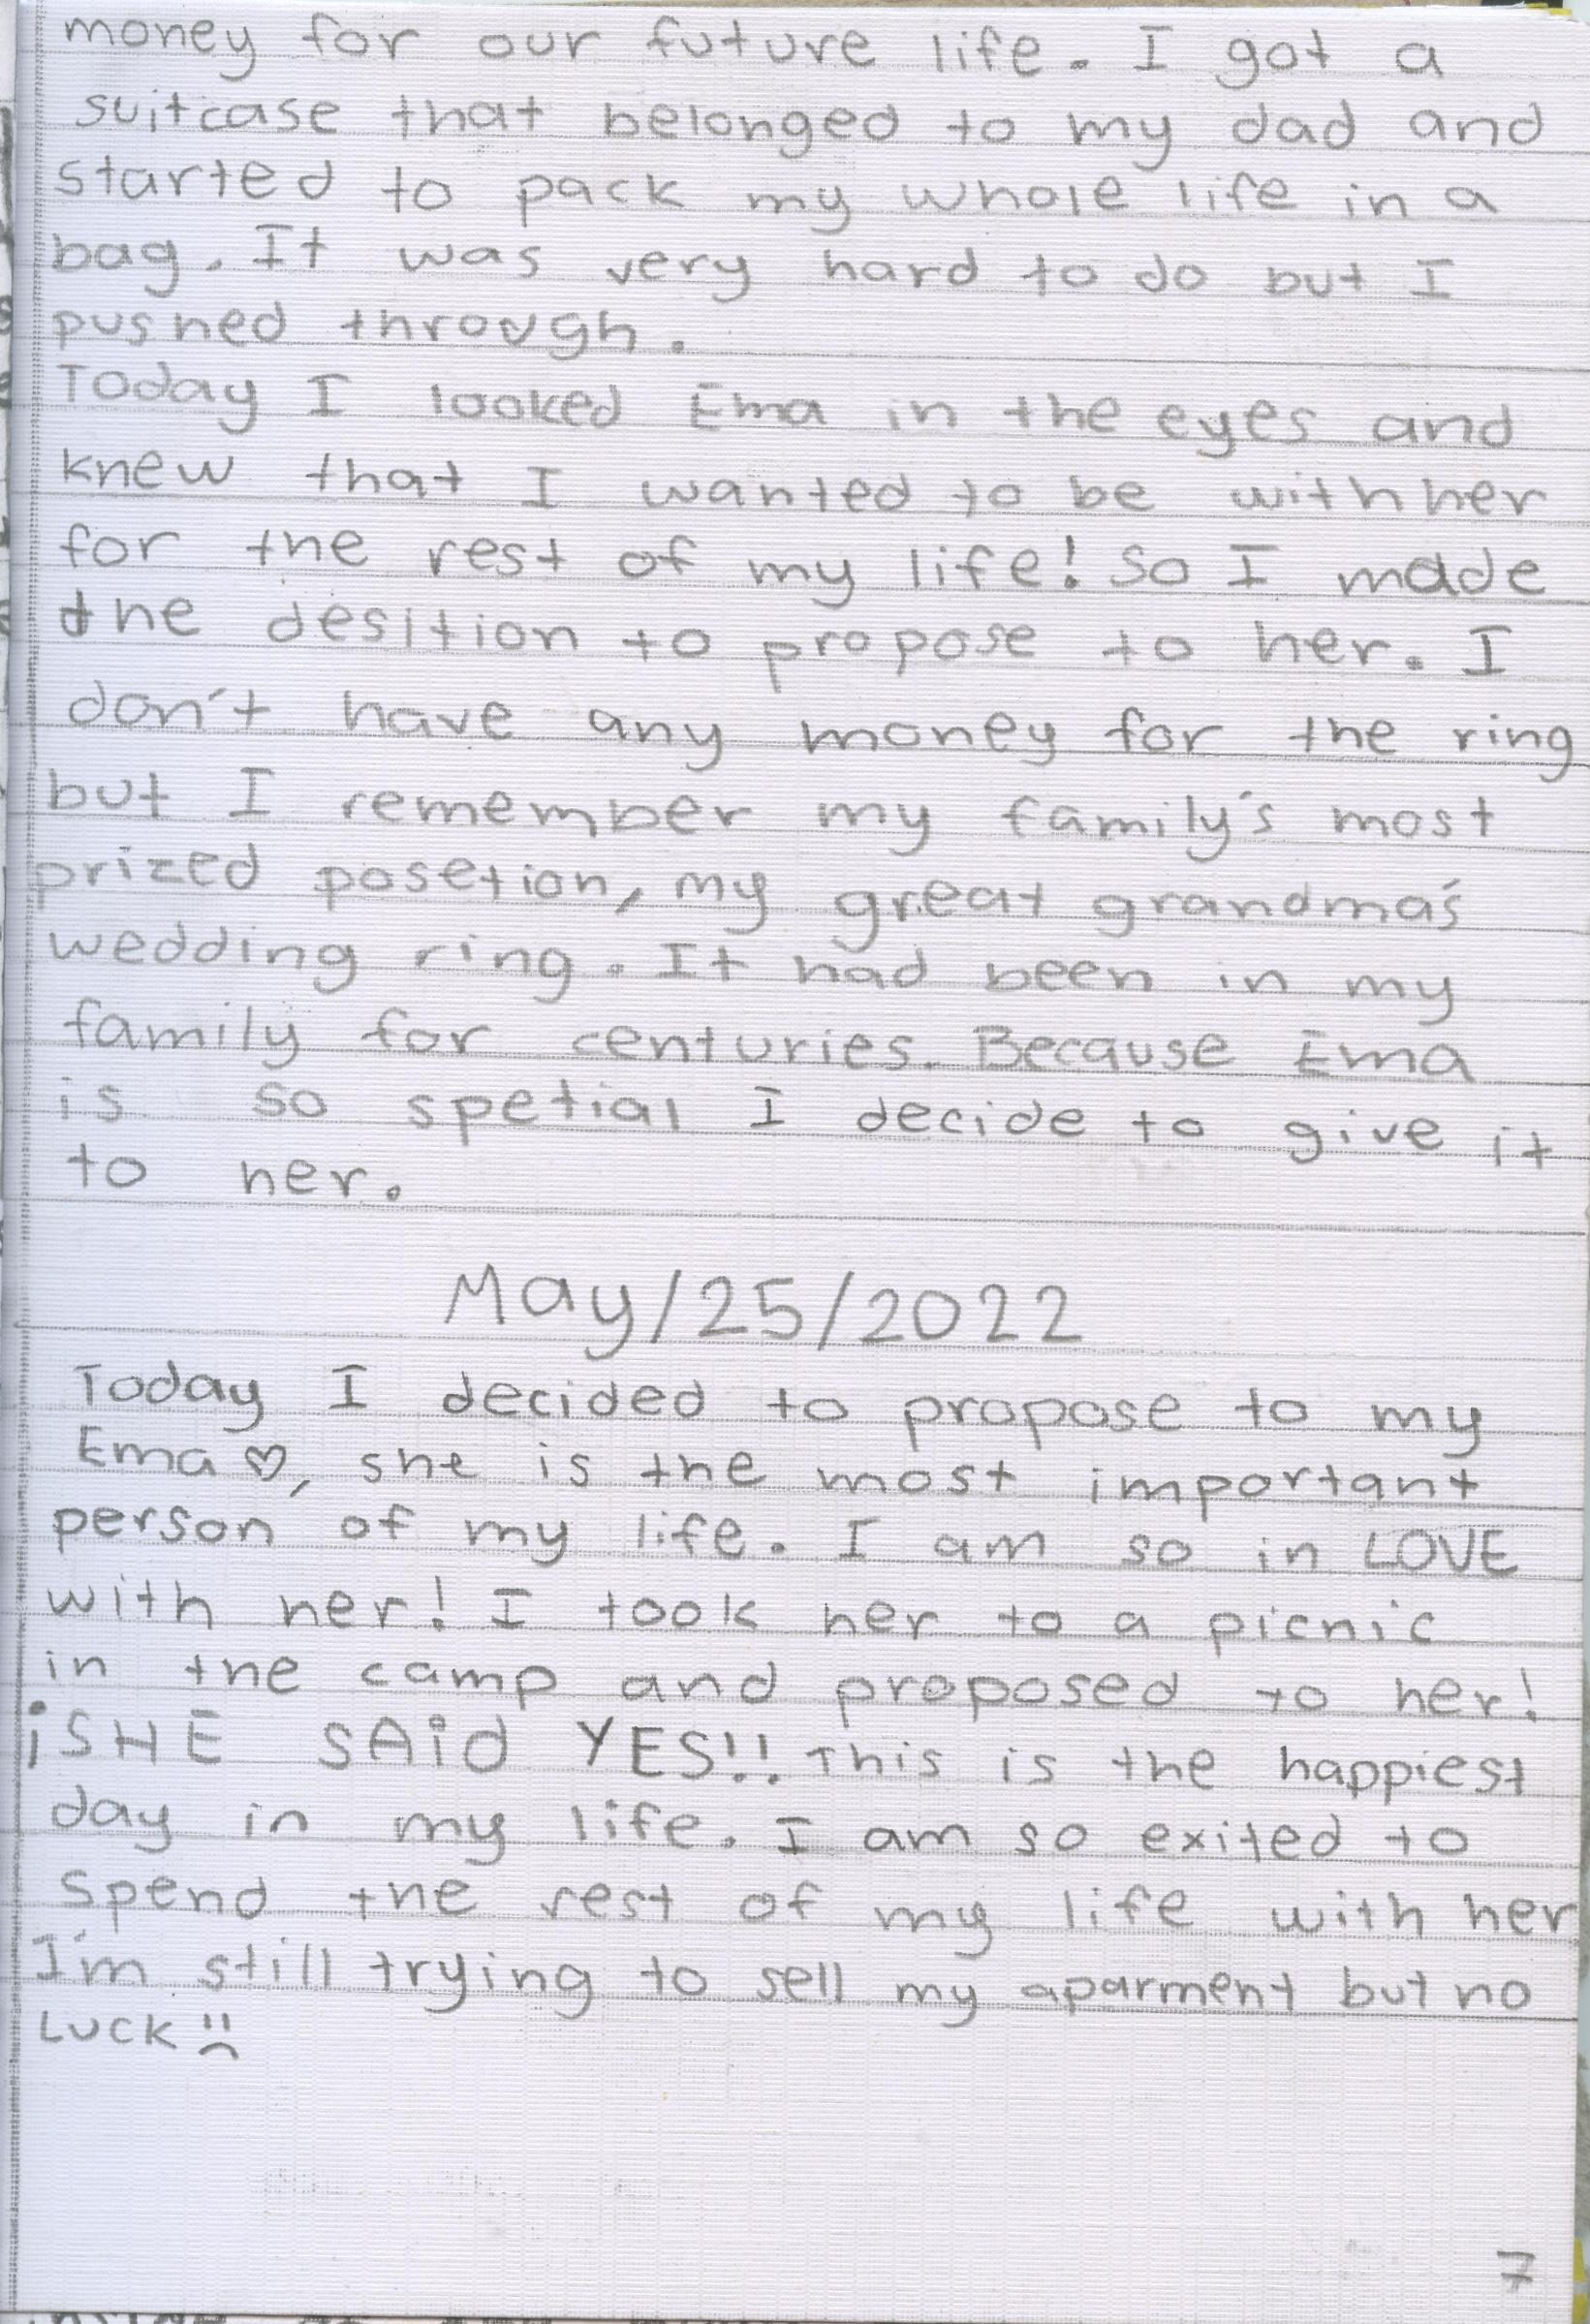 money for our future life. I got a
suitcase that belonged to my dad and
started to pack my whole life in a
bag. It was very hard to do but I
pushed through.
Today I looked Ema in the eyes and
knew that I wanted to be with her
for the rest of my life! So I made
the desition to propose to her. I
don't have any money for the ring
but I remember my family's most
prized posetion, my great grandma's
wedding ring. It had been in my
family for centuries. Because Ema
is so spetial I decide to give it
to her.
May/25/2022
Today I decided to propose to my
Ema ♡, she is the most important
person of my life. I am so in LOVE
with her! I took her to a picnic
in the camp and proposed to her!
¡SHE SAID YES!! This is the happiest
day in my life. I am so exited to
spend the rest of my life with her
I'm still trying to sell my aparment but no
Luck ☹
7